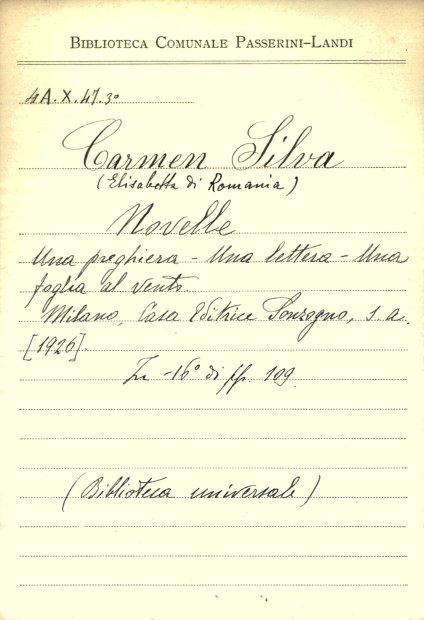 BIBLIOTECA COMUNALE PASSERINI-LANDI
4A.X.47.3°
Carmen Silva
(Elisabetta di Romania)
Novelle
Una preghiera - Una lettera - Una
foglia al vento.
Milano, Casa Editrice Sonzogno, s. a.
[1926].
In -16° di pp. 109
(Biblioteca universale)